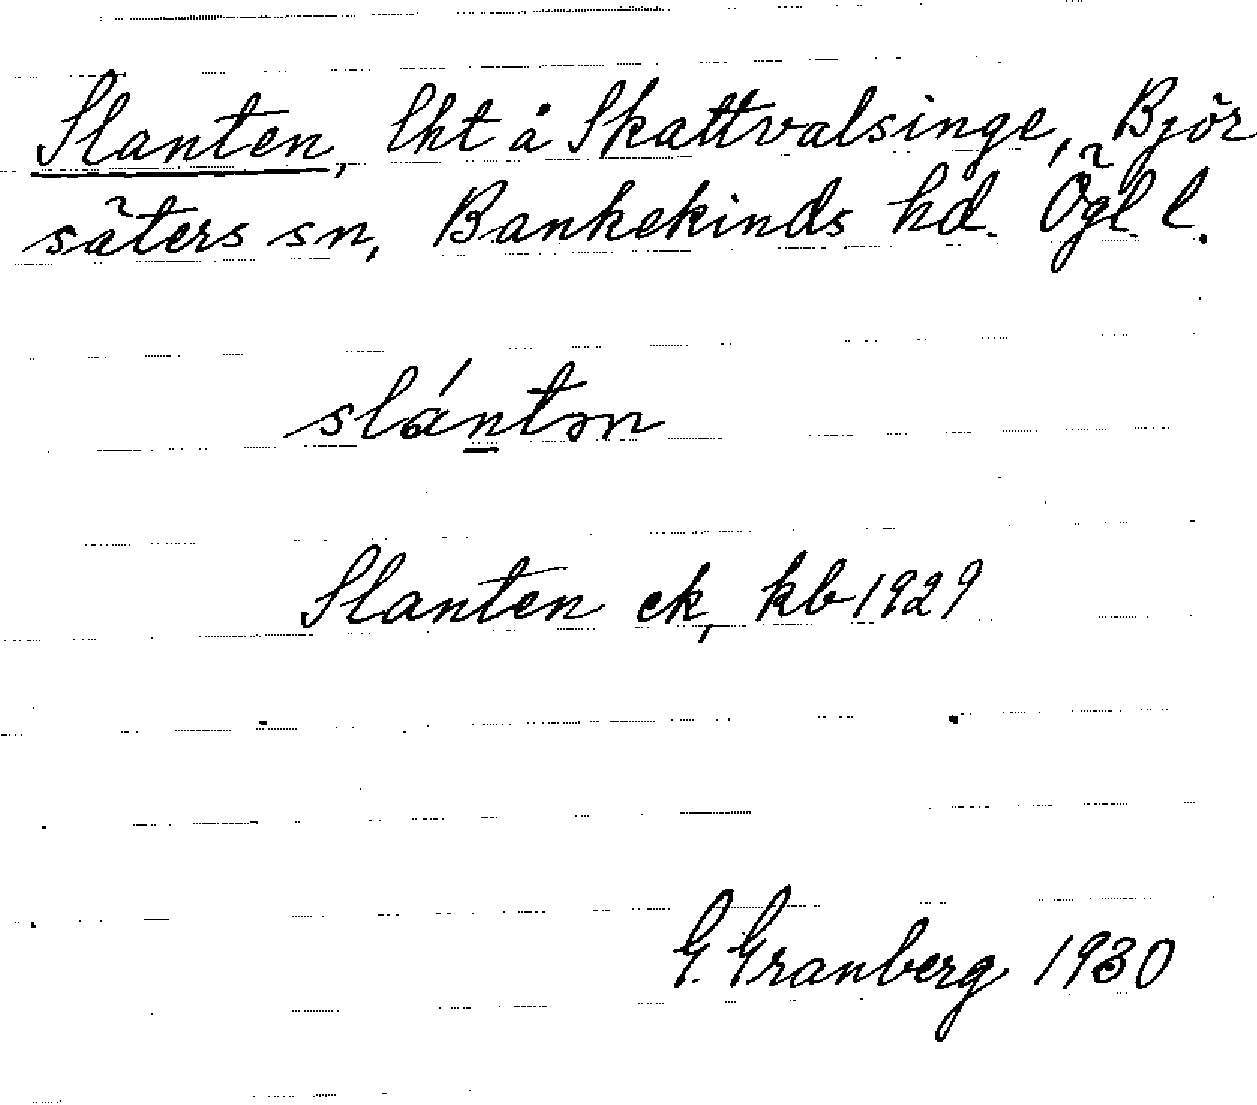 Slanten, lht å Skattvalsinge, Björ
säters sn, Bankekinds hd. Ögl. l.
slántən
Slanten ck, kb 1929
G. Granberg 1930